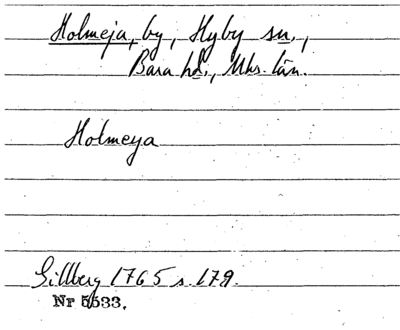 Holmeja, by, Hyby sn.,
Bara hd., Mhs. län.
Holmeya
Gillberg 1765 s. 179.
Nr 5533.